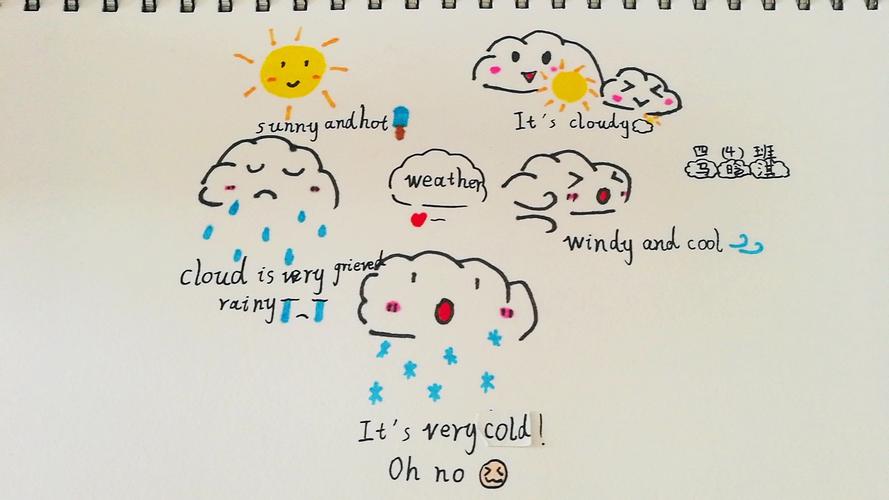 sunny and hot
It's cloudy
四(4)班
马晗淇
weather
windy and cool
cloud is very grieved
rainy
It's very cold!
Oh no